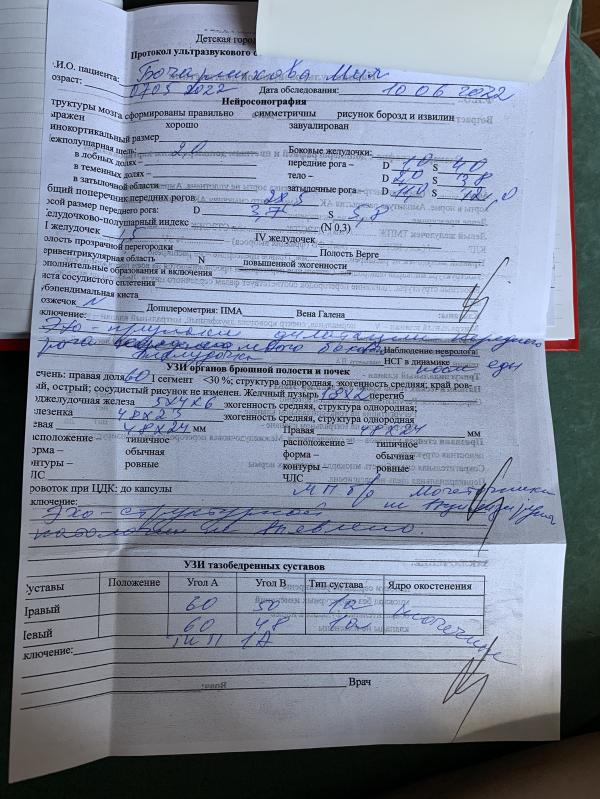 Детская горо
Протокол ультразвукового о
.И.О. пациента: Бочарникова Мия
озраст: 07.03.2022 Дата обследования: 10 06 2022
Нейросонография
труктуры мозга сформированы правильно симметричны рисунок борозд и извилин
ыражен хорошо завуалирован
инокортикальный размер
ежполушарная щель: 2,0 Боковые желудочки:
в лобных долях – передние рога – D S 4,0
в теменных долях – тело – D S 3,8
в затылочной области затылочные рога – D S
бщий поперечник передних рогов 28,5
осой размер переднего рога: D S
елудочково-полушарный индекс (N 0,3)
I желудочек IV желудочек
олость прозрачной перегородки Полость Верге
еривентрикулярная область N повышенной эхогенности
ополнительные образования и включения
иста сосудистого сплетения
убэпендимальная киста
озжечок N Допплерометрия: ПМА Вена Галена
ключение: Эхо-признаки дилатации переднего
рога левого бокового Наблюдение невролога
желудочка НСГ в динамике после еды
УЗИ органов брюшной полости и почек
ечень: правая доля 60 I сегмент <30 %; структура однородная, эхогенность средняя; край ров-
ый, острый; сосудистый рисунок не изменен. Желчный пузырь 18х2 перегиб
оджелудочная железа 5х4х6 эхогенность средняя, структура однородная;
елезенка 48х23 эхогенность средняя, структура однородная
евая 48х24 мм Правая 48х24 мм
асположение – типичное расположение – типичное
орма – обычная форма – обычная
онтуры – ровные контуры – ровные
ЛС ЧЛС
ровоток при ЦДК: до капсулы МП б/о Мочеточники
ключение: не
Эхо-структурной
патологии не выявлено.
УЗИ тазобедренных суставов
уставы Положение Угол А Угол В Тип сустава Ядро окостенения
Правый 60 50 1а
Левый 60 48 1а
ключение: тип 1А
Врач